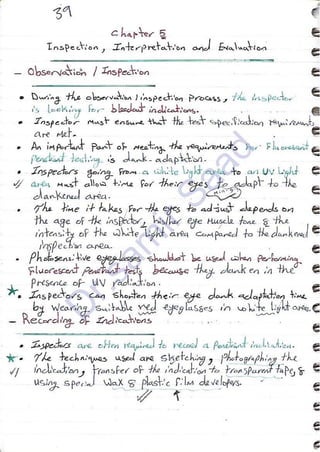 39
Chapter 5
Inspection, Interpretation and Evaluation
- Observation / Inspection
• During the observation / inspection process, the inspector
is looking for bleedout indications.
• Inspector must ensure that the test specification requirements
are met.
• An important part of meeting the requirements for Fluorescent
Penetrant testing is dark-adaptation.
• Inspectors going from a white light area to an UV light
area must allow time for their eyes to adapt to the
darkened area.
• The time it takes for the eyes to adjust depends on
the age of the inspector, his/her eye muscle tone & the
intensity of the white light area compared to the darkened
inspection area.
• Photosensitive eyeglasses should not be used when performing
Fluorescent Penetrant tests because they darken in the
Presence of UV radiation.
• Inspectors can shorten their eye dark adaptation time
by wearing suitable red eyeglasses in white light area.
Recording of Indications
• Inspectors are often required to record a Penetrant indication.
• The techniques used are sketching, Photographing the
indication, transfer of the indication to transparent tapes &
using special wax & plastic film developers.